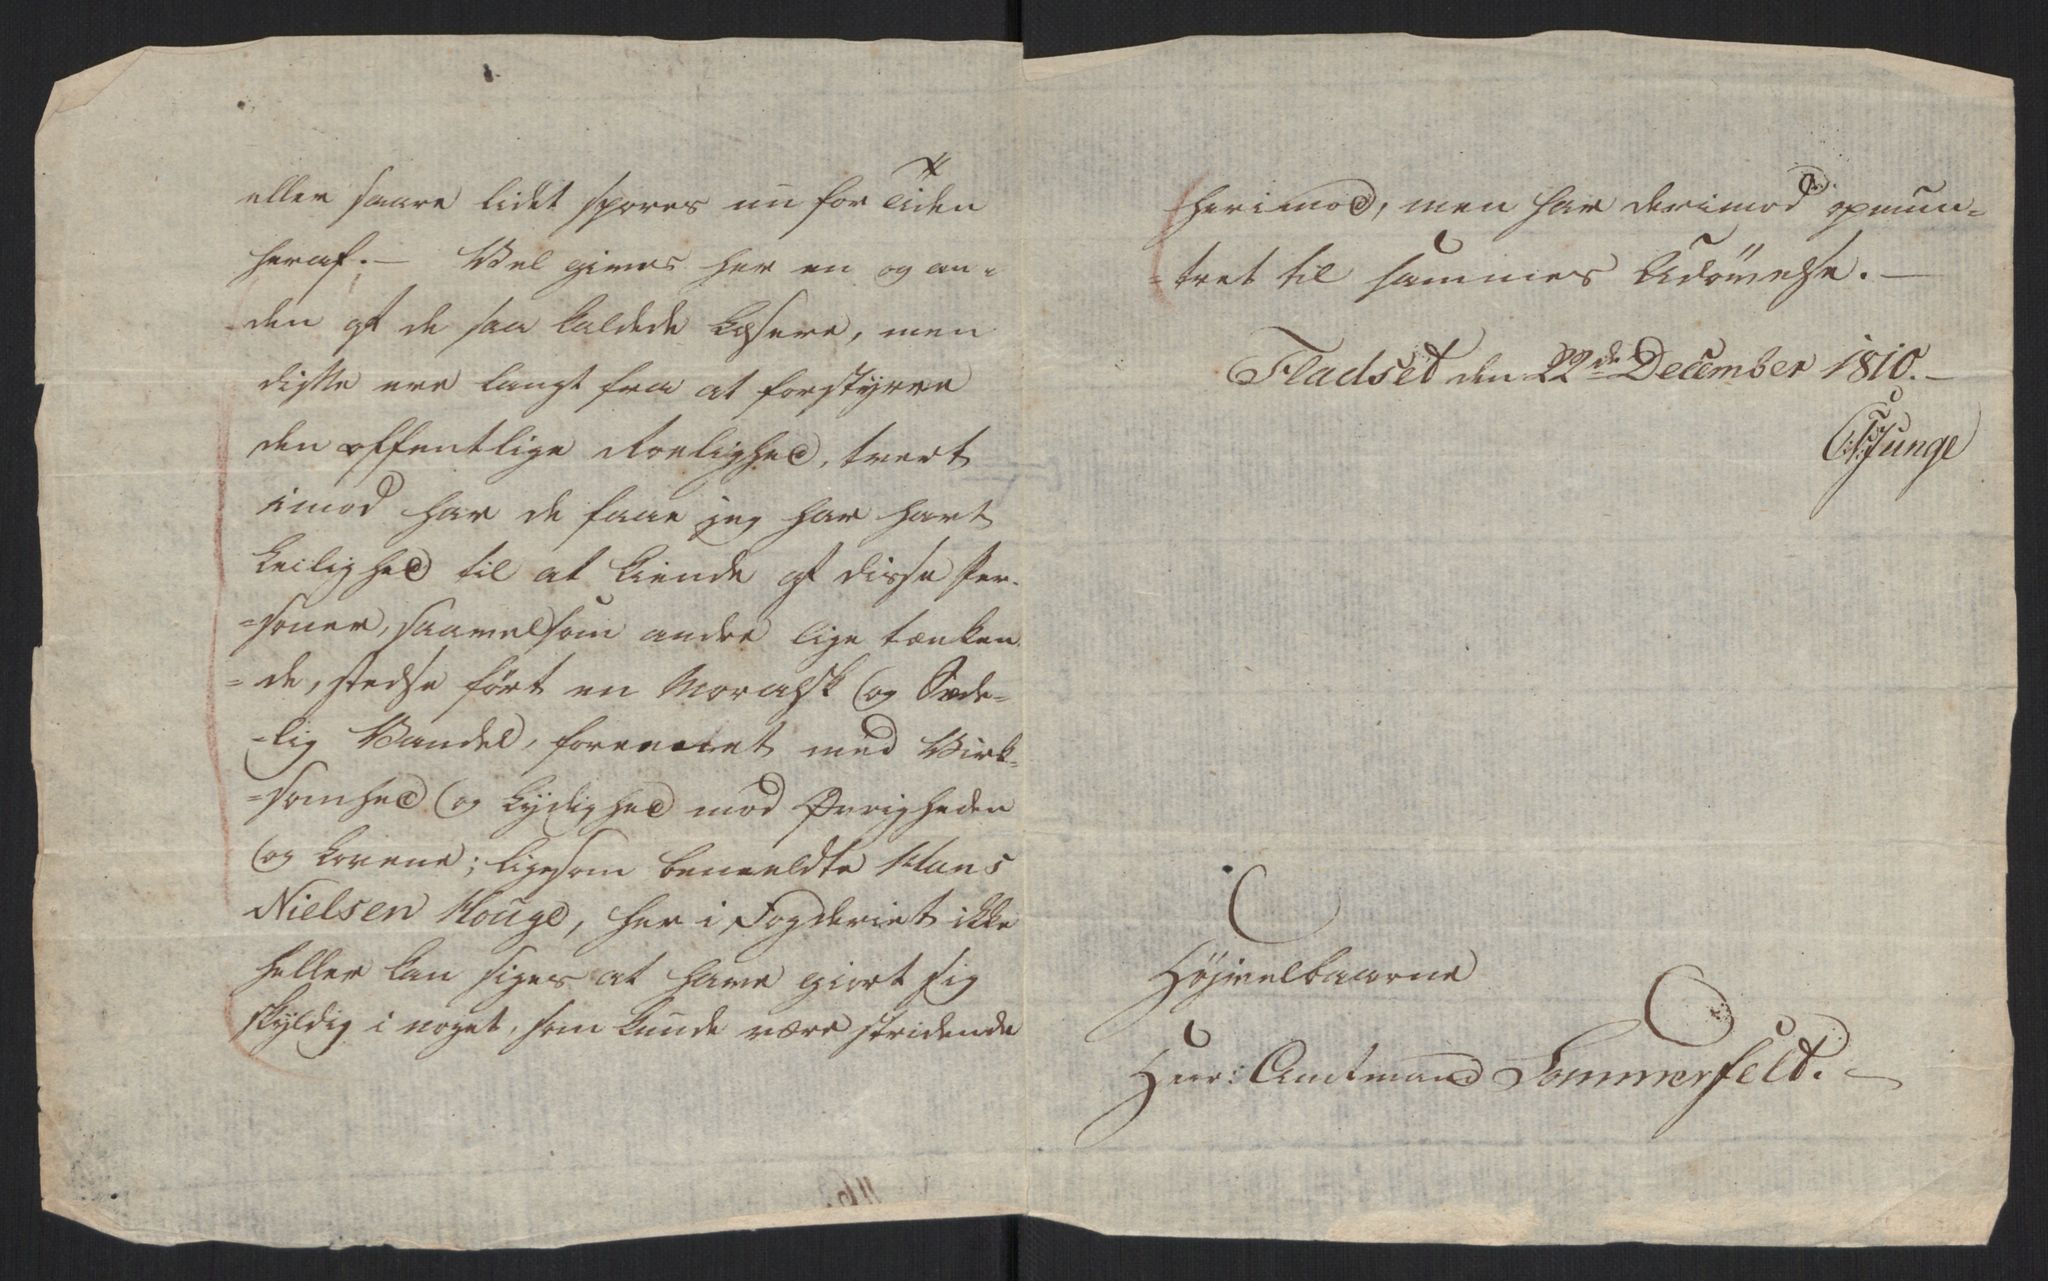 eller saare lidet spores nu for Tiden
heraf. — Vel gives her en og an-
den af de saa kaldede Læsere, men
disse ere langt fra at forstyrre
den offentlige Roelighed, tvert
imod har de faae jeg har havt
Leilighed til at kiende af disse Per-
=soner, saavelsom andre lige tænken
=de, stedse ført en Moralsk og Sæde-
-lig Vandel, foreenet med Virk-
=somhed og Lydighed mod Øvrigheden
og Lovene; ligesom bemeldte Hans
Nielsen Houge, her i Fogderiet ikke
heller kan siges at have giort sig
skyldig i noget, som kunde være stridende
herimod, men har derimod opmun=
=tret til sammes Udøvelse. —
Fladset den 22de December 1810. —
Junge
Højvelbaarne
Herr: Amtmand Sommerfelt. —